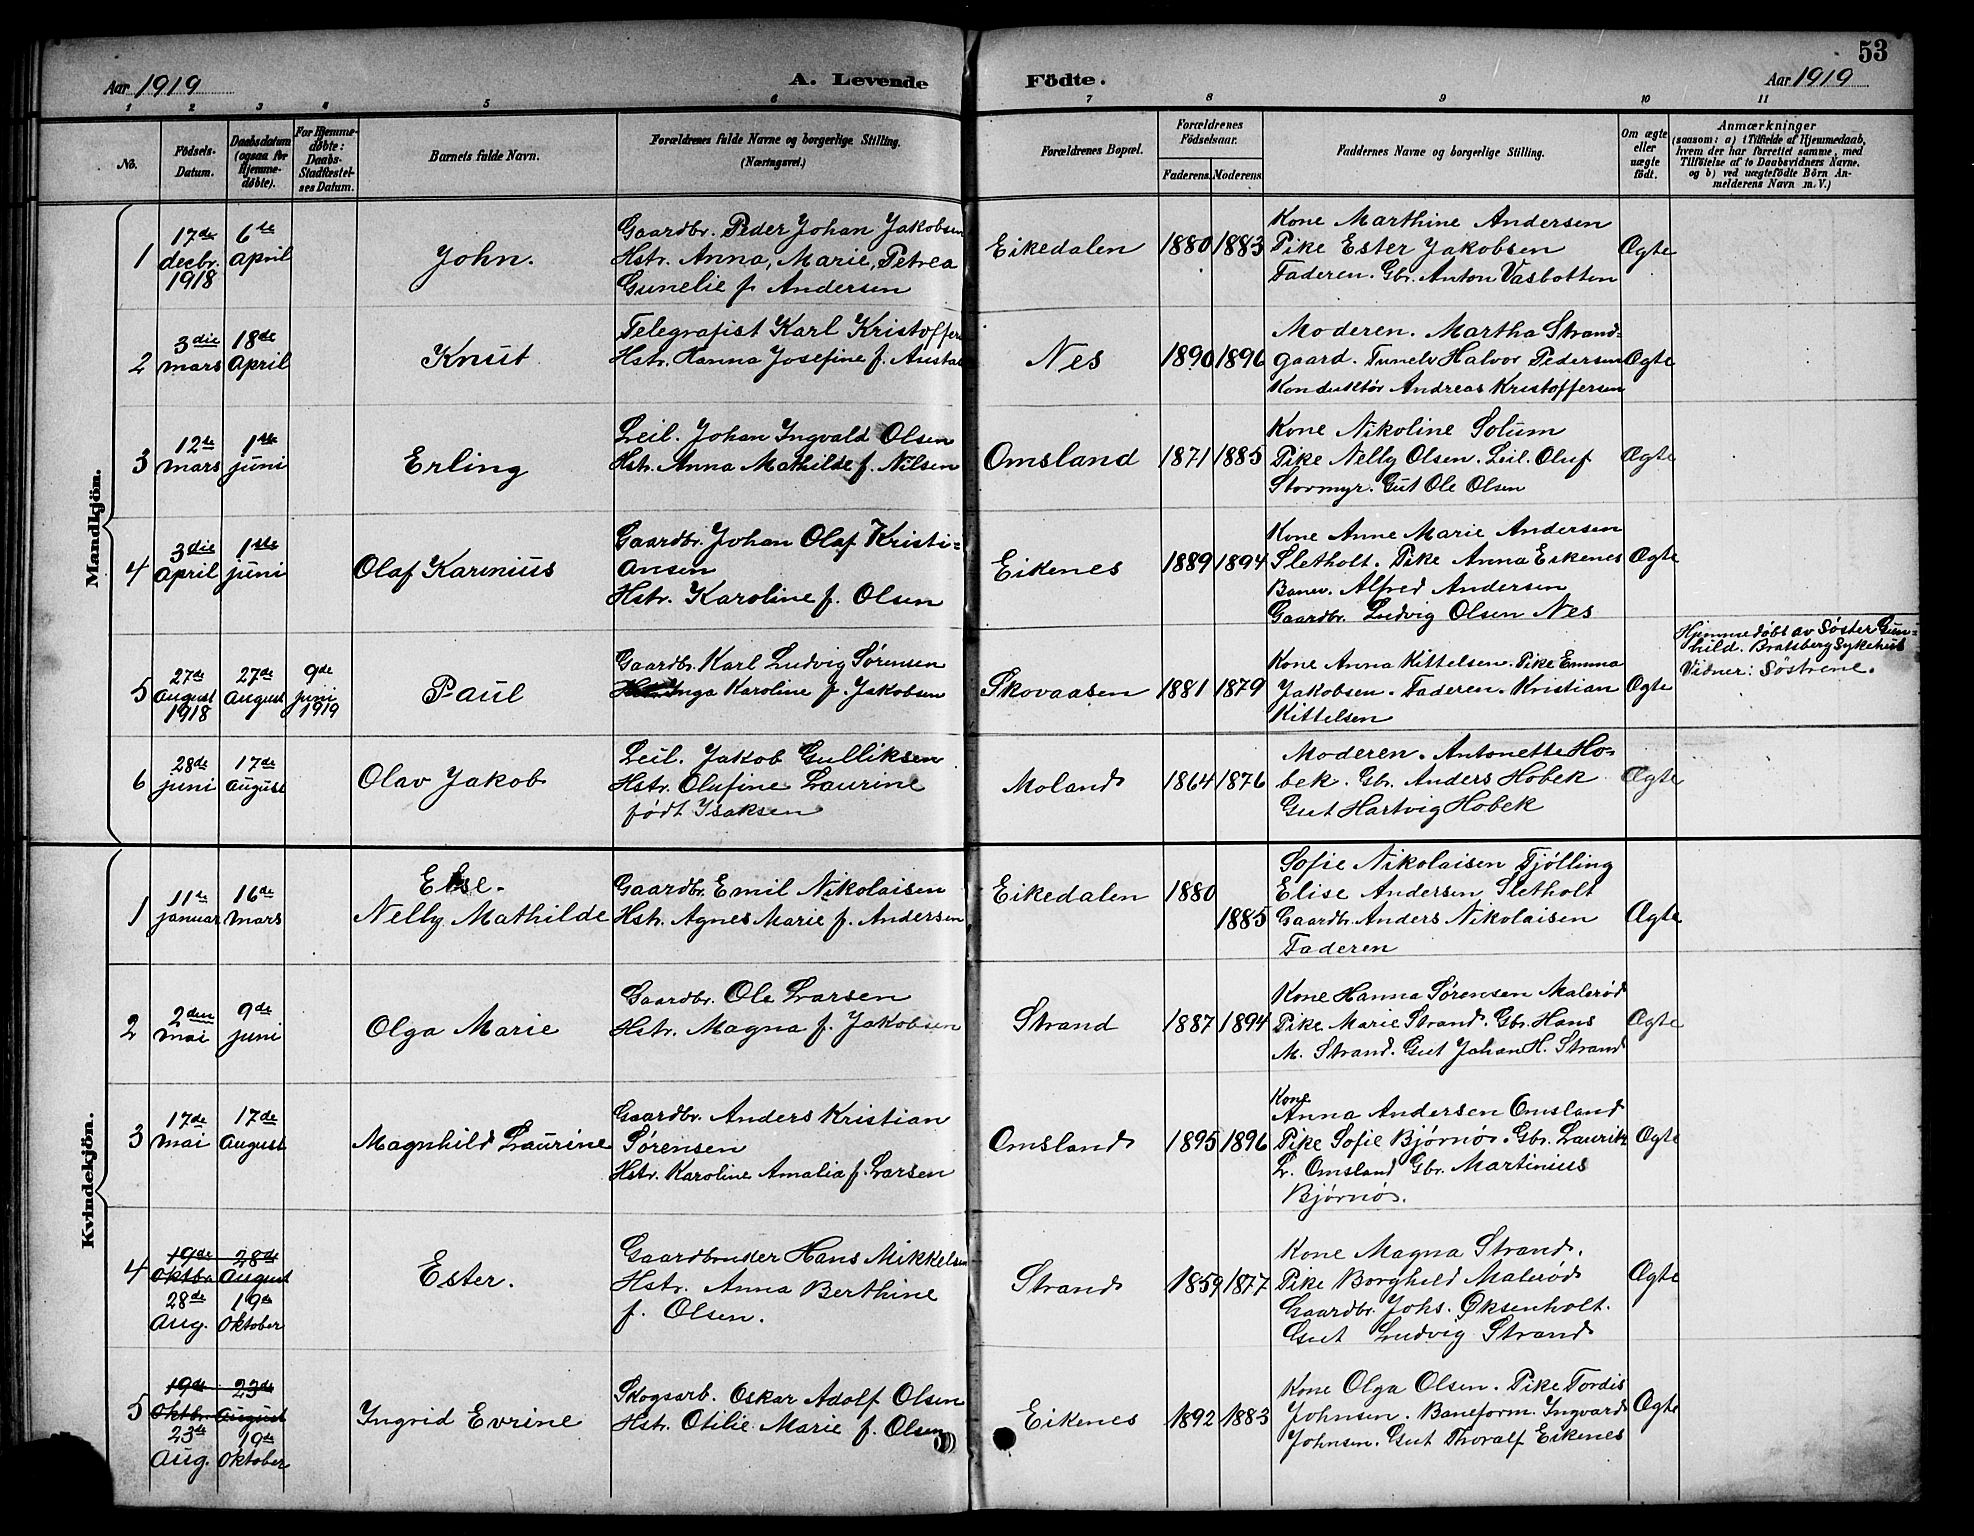 53
Aar 1919
A. Levende
Födte.
Aar 1919
1 2 3 4 5 6 7 8 9 10 11
Nö.
Födsels-
Datum.
Daabsdatum
(ogsaa for
Hjemme-
døbte).
For Hjemme-
døbte:
Daabs-
Stadfæstel-
ses Datum.
Barnets fulde Navn.
Forældrenes fulde Navne og borgerlige Stilling.
(Næringsvei.)
Forældrenes Bopæl.
Forældrenes
Födselsaar.
Faderens.
Moderens.
Faddernes Navne og borgerlige Stilling.
Om ægte
eller
uægte
født.
Anmærkninger
(saasom: a) i Tilfælde af Hjemmedaab,
hvem der har forrettet samme, med
Tilföielse af to Daabsvidners Navne.
og b) ved uægtefödte Börn An-
melderens Navn m. V.)
Mandkjön.
1
17de
decbr.
1918
6te
April
John.
Gaardbr. Peder Johan Jakobsen
Hstr. Anna, Marie, Petrea
Gunelie f. Andersen
Eikedalen
1880
1883
Kone Marthine Andersen
Pike Ester Jakobsen
Faderen. Gbr. Anton Vasbotten
Ægte
2
3die
mars
18de
April
Knut
Telegrafist Karl Kristoffers
Hstr. Hanna Josefine f. Austa
Nes
1890
1896
Moderen. Martha Strand-
gaard. Tunelv Halvor Pedersen
Konduktør Andreas Kristoffersen
Ægte
3
12te
mars
1ste
juni
Erling
Leil. Johan Ingvald Olsen
Hstr. Anna Mathilde f. Nilsen
Omsland
1871
1885
Kone Nikoline Solum
Pike Nelly Olsen. Leil. Oluf
Stormyr. Gut Ole Olsen
Ægte
4
3die
April
1ste
juni
Olaf Karenius
Gaardbr. Johan Olaf Kristi-
ansen
Hstr. Karoline f. Olsen
Eikenes
1889
1894
Kone Anne Marie Andersen
Sletholt. Pike Anna Eikenes
Banev. Alfred Andersen
Gaardbr. Ludvig Olsen Nes
Ægte
5
27de
August
1918
27de
August
9de
juni
1919
Paul
Gaardbr. Karl Ludvig Sørensen
Hstr. Inga Karoline f. Jakobsen
Skovaasen
1881
1879
Kone Anna Kittelsen. Pike Emma
Jakobsen. Faderen. Kristian
Kittelsen
Ægte
Hjemmedøbt av Søster Gun-
hild. Bratsberg Sykehus
Vidner: Søstrene.
6
28de
juni
17de
August
Olav Jakob
Leil. Jakob Gulliksen
Hstr. Olufine Laurine
født Isaksen
Moland
1864
1876
Moderen. Antonette Ho-
bek. Gbr. Anders Hobek
Gut Hartvig Hobek
Ægte
Kvindekjön.
1
11te
januar
16de
mars
Else.
Nelly Mathilde
Gaardbr. Emil Nikolaisen
Hstr. Agnes Marie f. Andersen
Eikedalen
1880
1885
Sofie Nikolaisen Tjølling
Elise Andersen Sletholt
Gaardbr. Anders Nikolaisen
Faderen
Ægte
2
2den
mai
9de
juni
Olga Marie
Gaardbr. Ole Larsen
Hstr. Magna f. Jakobsen
Strand
1887
1894
Kone Hanna Sørensen Malerød
Pike Marie Strand. Gbr. Hans
M. Strand. Gut Johan H. Strand
Ægte
3
17de
mai
17de
August
Magnhild Laurine
Gaardbr. Anders Kristian
Sørensen
Hstr. Karoline Amalia f. Larsen
Omsland
1895
1896
Kone
Anna Andersen Omsland
Pike Sofie Bjørnøs. Gbr. Laurik
L. Omsland Gbr. Martinius
Bjørnøs.
Ægte
4
19de
Oktbr
28de
August
28de
Aug.
19de
Oktober
Ester.
Gaardbruder Hans Mikkelsen
Hstr. Anna Berthine
f. Olsen.
Strand
1859
1877
Kone Magna Strand.
Pike Borghild Malerød
Gaardbr. Johs. Øksenholt.
Gut Ludvig Strand
Ægte
5
19de
Oktbr
23de
August
23de
Aug.
19de
Oktober
Ingrid Evrine
Skogsarb. Oskar Adolf Olsen
Hstr. Otilie Marie f. Olsen
Eikenes
1892
1883
Kone Olga Olsen. Pike Tordis
Johnsen. Baneform. Ingvard
Johnsen. Gut Thoralf Eikenes
Ægte